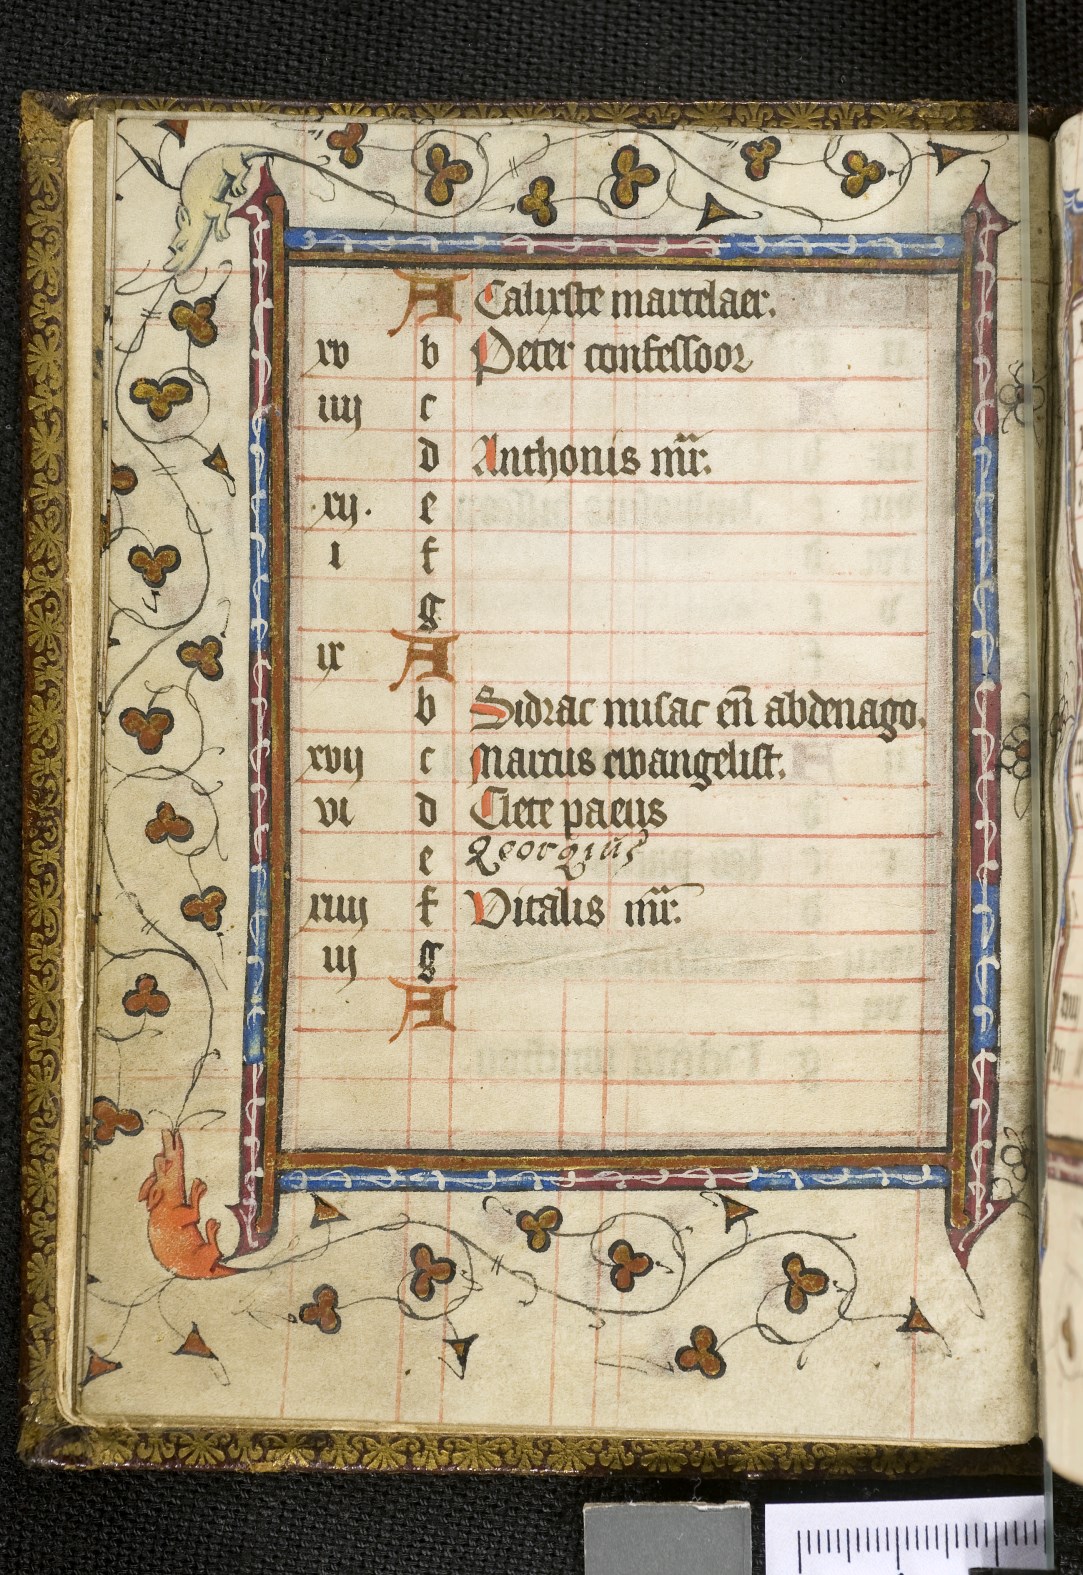 A Calixste martelaer.
xv b Peter confessoor
iiij c
d Anthonis mr̄.
.xij. e
i f
g
ix A
b Sidrac misac en̄ abdenago.
xvij c Marcus ewangelist.
vi d Clete paeus
e georgius
xiiij f Vitalis mr̄.
iij g
A